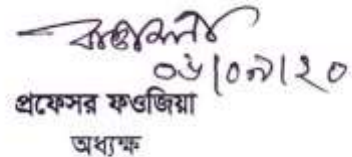 ০৬|০৯|২০
প্রফেসর ফওজিয়া
অধ্যক্ষ